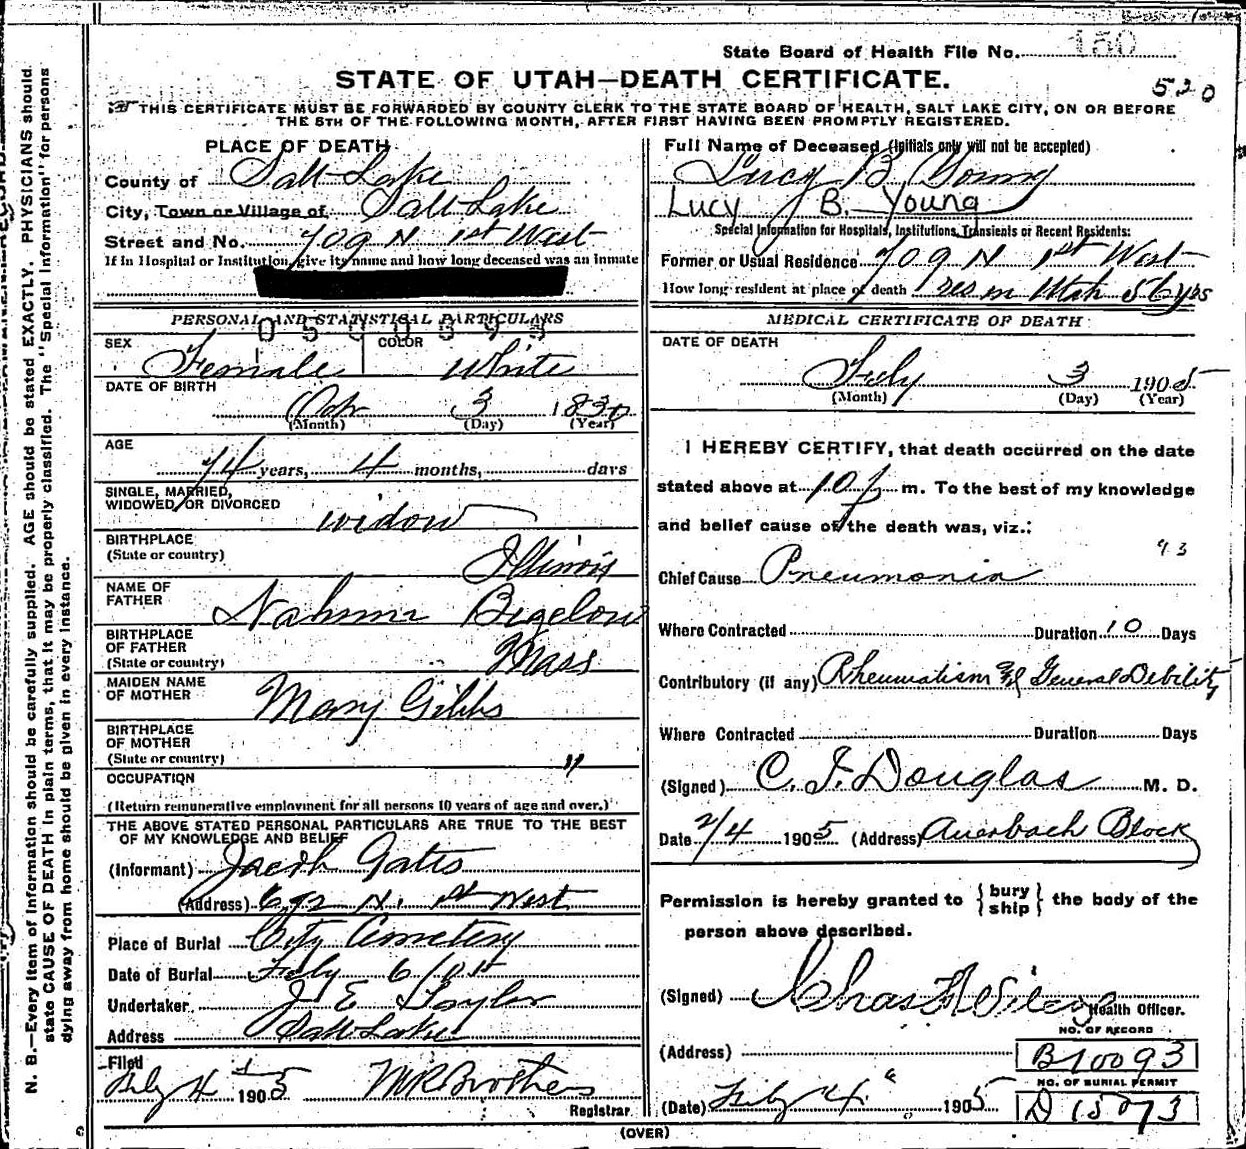 State Board of Health File No. 150
STATE OF UTAH—DEATH CERTIFICATE.
520
THIS CERTIFICATE MUST BE FORWARDED BY COUNTY CLERK TO THE STATE BOARD OF HEALTH, SALT LAKE CITY, ON OR BEFORE
THE 5TH OF THE FOLLOWING MONTH, AFTER FIRST HAVING BEEN PROMPTLY REGISTERED.
N. B.—Every item of information should be carefully supplied. AGE should be stated EXACTLY. PHYSICIANS should
state CAUSE OF DEATH in plain terms, that it may be properly classified. The "Special Information" for persons
dying away from home should be given in every instance.
PLACE OF DEATH
County of Salt Lake
City, Town or Village of Salt Lake
Street and No. 709 N 1st West
If in Hospital or Institution, give its name and how long deceased was an inmate
PERSONAL AND STATISTICAL PARTICULARS
0500393
SEX Female COLOR White
DATE OF BIRTH
Oct 3 1830
(Month) (Day) (Year)
AGE
74 years, 4 months, days
SINGLE, MARRIED,
WIDOWED, OR DIVORCED widow
BIRTHPLACE
(State or country) Illinois
NAME OF
FATHER Nahum Bigelow
BIRTHPLACE
OF FATHER
(State or country) Mass
MAIDEN NAME
OF MOTHER Mary Gibbs
BIRTHPLACE
OF MOTHER
(State or country) "
OCCUPATION
(Return remunerative employment for all persons 10 years of age and over.)
THE ABOVE STATED PERSONAL PARTICULARS ARE TRUE TO THE BEST
OF MY KNOWLEDGE AND BELIEF
(Informant) Jacob Gates
(Address) 672 N. 1st West
Place of Burial City Cemetery
Date of Burial Feby 6 1905
Undertaker J E Taylor
Address Salt Lake
Filed
Feby 4 1905 M R Brothers
Registrar
Full Name of Deceased (Initials only will not be accepted)
Lucy B. Young
Lucy B. Young
Special Information for Hospitals, Institutions, Transients or Recent Residents:
Former or Usual Residence 709 N 1st West
How long resident at place of death res in Utah 56 yrs
MEDICAL CERTIFICATE OF DEATH
DATE OF DEATH
Feby 3 1905
(Month) (Day) (Year)
I HEREBY CERTIFY, that death occurred on the date
stated above at 10 p m. To the best of my knowledge
and belief cause of the death was, viz.:
93
Chief Cause Pneumonia
Where Contracted Duration 10 Days
Contributory (if any) Rheumatism & General Debility
Where Contracted Duration Days
(Signed) C. F. Douglas M. D.
Date 2/4 1905 (Address) Auerbach Block
Permission is hereby granted to {bury
ship} the body of the
person above described.
(Signed) Health Officer.
NO. OF RECORD
(Address) B10093
NO. OF BURIAL PERMIT
(Date) Feby 4 1905 D 15073
(OVER)